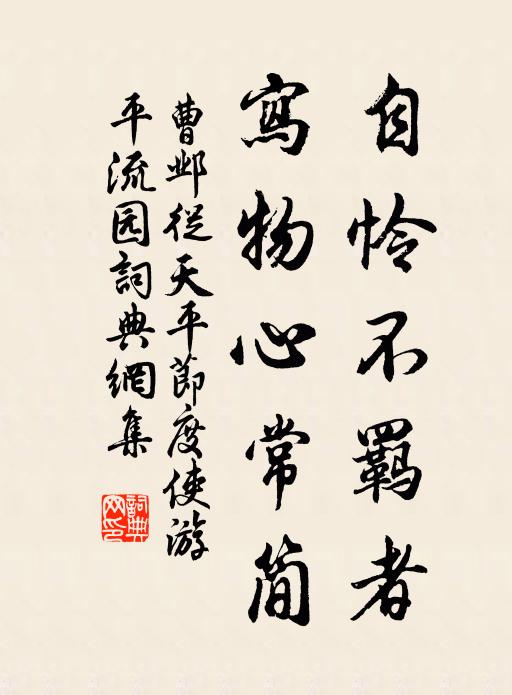 自怜不羁者
寫物心常简
曹邺從天平節度使游
平流园詞典網集
詞典网印